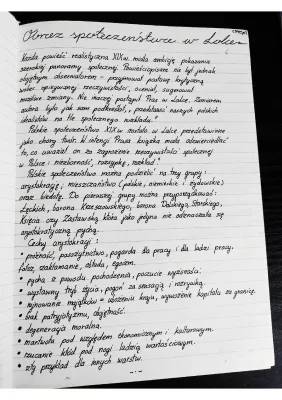 Obraz społeczeństwa w Lalce
Każda powieść realistyczna XIX w. miała ambicję pokazania
szerokiej panoramy społecznej. Powieściopisarz nie był jednak
obojętnym obserwatorem - przyjmował postawę krytyczną
wobec opisywanej rzeczywistości, oceniał, sugerował
możliwe zmiany. Nie inaczej postąpił Prus w Lalce. Zamiarem
autora było jak sam podkreślał, przedstawić naszych polskich
idealistów na tle społecznego rozkładu."
Polskie społeczeństwo XIX w. zostało w Lalce przedstawione
jako chory twór. W intencji Prusa miało odzwierciedlić
to, co uważał on za zagrożenie rzeczywistości społecznej
w Polsce: niezborność, rozsypkę, rozkład.
Polskie społeczeństwo można podzielić na trzy grupy:
arystokrację, mieszczaństwo (polskie, niemieckie i żydowskie)
oraz biedotę. Do pierwszej grupy można przyporządkować:
Łęckich, barona Krzeszowskiego, barona Dalskiego, Starskiego,
Księcia czy Zasławską która jako jedyna nie odznaczała się
arystokratyczną pychą.
Cechy arystokracji:
• próżność, pasożytnictwo, pogarda dla pracy i dla ludzi pracy,
fałsz, zakłamanie, obłuda, egoizm.
• pycha z powodu pochodzenia, poczucie wyższości.
• wystawny tryb życia, pogoń za sensacją i rozrywką.
• rujnowanie majątków = ubożenie kraju, wywożenie kapitału za granicę.
• brak patriotyzmu, obojętność.
• degeneracja moralna.
• martwota pod względem ekonomicznym i kulturowym.
• rzucanie kłód pod nogi ludziom wartościowym.
• zły przykład dla innych warstw.